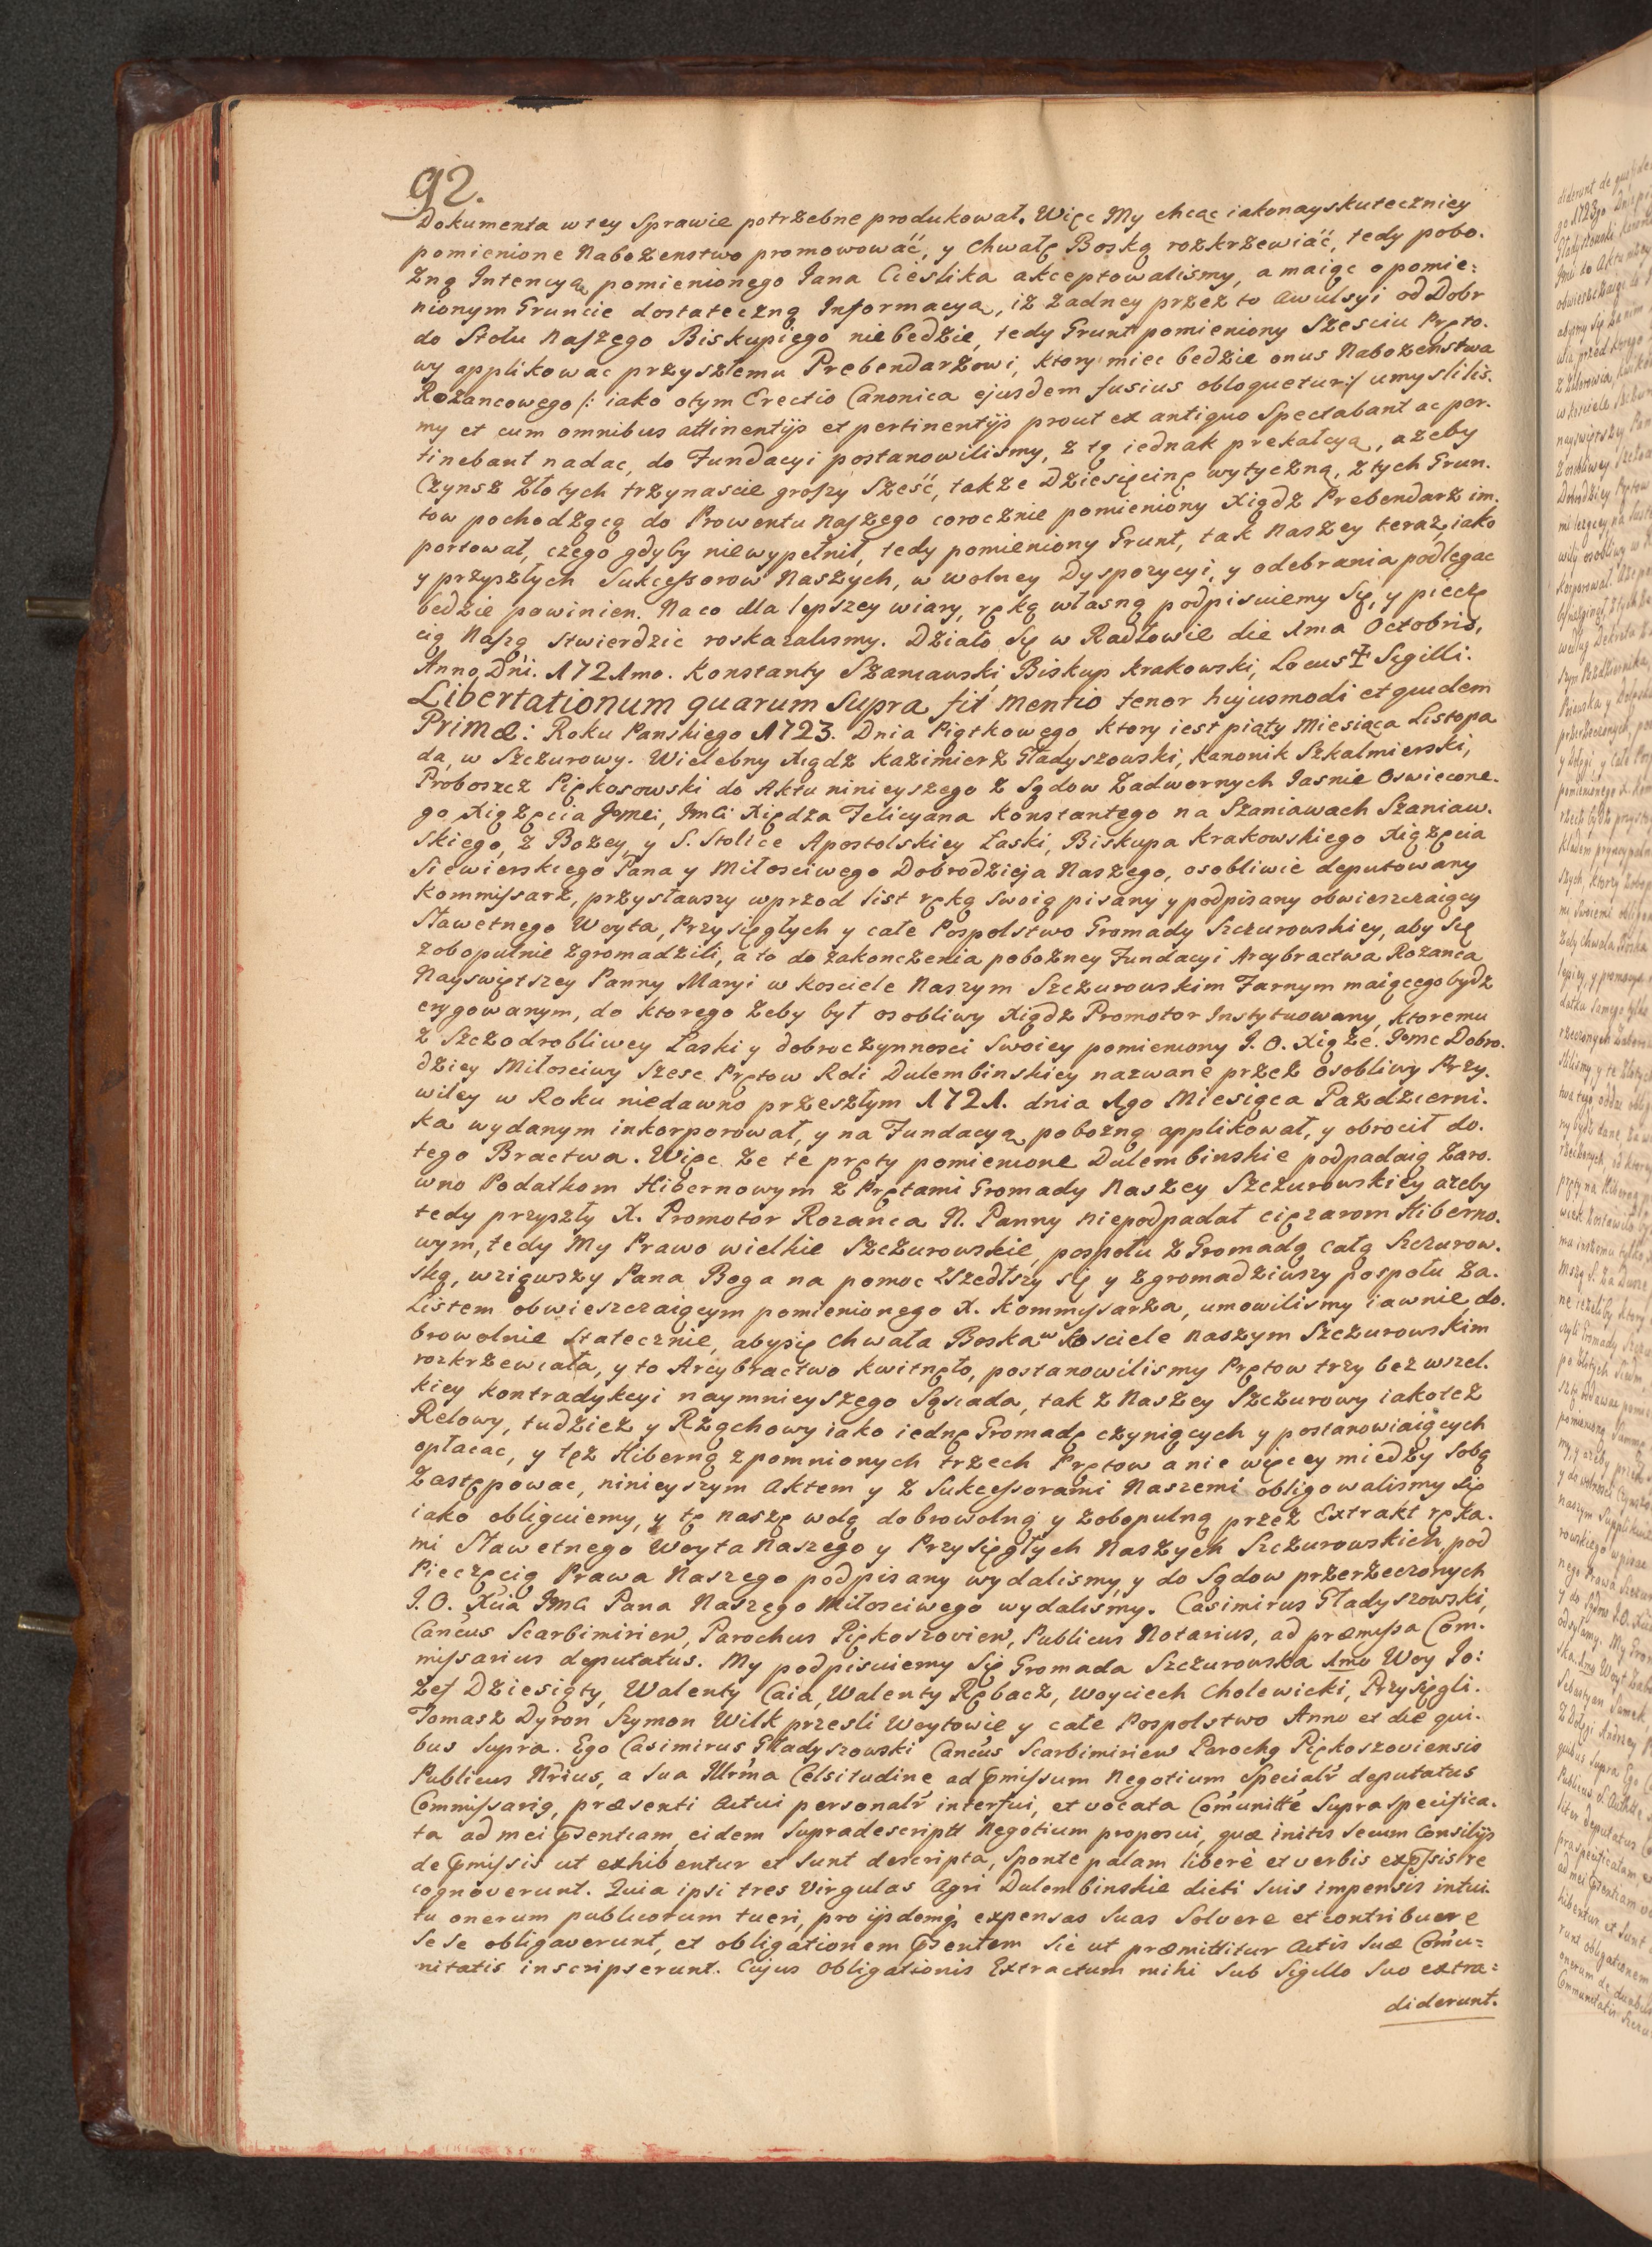 92.
Dokumenta w tey Sprawie potrzebne produkował. Więc My chcąc iakonayskuteczniey
pomienione Nabożenstwo promowowáć, y Chwałę Boską rozkrzewiáć, tedy pobo.
żną Intencyą pomienionego Jana Cieślika akceptowaliśmy, a maiąc o pomie:
nionym Gruncie dostateczną Informacyą, iż żadney przez to Awulsyi od Dobr
do Stołu Naszego Biskupiego niebedzie, tedy Grunt pomieniony Szesciu Pręto.
wy applikowac przyszłemu Prebendarzowi, ktory miec bedzie onus Nabożenstwa
Rożancowego /: iako otym Erectio Canonica ejusdem fusius obloquetur :/ umyslilis.
my et cum omnibus attinentijs et pertinentijs prout ex antiquo Spectabant ac per.
tinebant nadac, do Fundacyi postanowilismy, z tą iednak prekałcyą, ażeby
Czynsz Złotych trzynascie groszy Sześć, takze Dziesięcinę wytyczną, z tych Grun.
tow pochodzącą do Prowentu Naszego corocznie pomieniony Xiądz Prebendarz im.
portował, czego gdyby niewypełnił, tedy pomieniony Grunt, tak Naszey teraz, iako
y przyszłych Sukcessorow Naszych, w wolney Dyspozycyi, y odebrania podlegac
bedzie powinien. Na co dla lepszey wiary, ręką własną podpisuiemy Się, y pieczę
cią Naszą stwierdzic roskazalismy. Działo Się w Radłowie die 1ma Octobris,
Anno Dńi. 1721mo. Konstanty Szaniawski Biskup Krakowski, Locus ‡ Sigilli.
Libertationum quarum Supra fit mentio tenor hujusmodi et quidem
Primæ: Roku Panskiego 1723. Dnia Piątkowego ktory iest piąty Miesiąca Listopa
da, w Szczurowy. Wielebny Xiądz Kazimierz Gładyszowski, Kanonik Szkalmierski,
Proboszcz Piękosowski do Aktu ninieyszego z Sądow Zadwornych Jasnie Oswiecone.
go Xiążęcia Jeᵒmci, Jmći Xiędza Felicyana Konstantego na Szaniawach Szaniaw.
skiego, z Bożey, y S. Stolice Apostolskiey Łaski, Biskupa Krakowskiego Xiążęcia
Siewierskiego Pana y Miłosciwego Dobrodzieja Naszego, osobliwie deputowany
Kommissarz, przysławszy wprzod list ręką Swoią pisany y podpisany obwieszczaiący
Sławetnego Woyta, Przysięgłych y całe Pospolstwo Gromady Szczurowskiey, aby Się
zobopulnie zgromadzili, a to do zakonczenia pobożney Fundacyi Arcybractwa Rożanca
Nayświętszey Panny Maryi w Kosciele Naszym Szczurowskim Farnym maiącego bydz
erygowanym, do ktorego żeby był osobliwy Xiądz Promotor Instytuowany, ktoremu
z Szczodrobliwey Łaski y dobroczynnosci Swoiey pomieniony J. O. Xiąże. Jᵒmc Dobro.
dziey Miłosciwy Szesc Prętow Roli Dulembinskiey nazwane przez osobliwy Przy.
wiley w Roku niedawno przeszłym 1721. dnia 1go Miesiąca Pazdzierni.
ka wydanym inkorporował, y na Fundacyą pobożną applikował, y obrocił do.
tego Bractwa. Więc że te pręty pomienione Dulembinskie podpadaią zaro.
wno Podatkom Hibernowym z Prętami Gromady Naszey Szczurowskiey ażeby
tedy przyszły X. Promotor Rozanca N. Panny niepodpadał ciężarom Hiberno.
wym, tedy My Prawo wielkie Szczurowskie, pospołu z Gromadą całą Szczurow.
ską, wziąwszy Pana Boga na pomoc zszedłszy się y zgromadziwszy pospołu za.
Listem obwieszczaiącym pomienionego X. Kommissarza, umowilismy iawnie, do.
browolnie statecznie, abysię Chwała Boska w Kosciele naszym Szczurowskim
rozkrzewiała, y to Arcybractwo kwitnęło, postanowilismy Prętow trzy bez wszel.
kiey kontradykcyi naymnieyszego Sąsiada, tak z Naszey Szczurowy iakoteż
Relowy, tudzież y Rżąchowy iako iednę Gromadę czyniących y postanowiaiących
opłacac, y tęż Hiberną z pomnionych trzech Prętow a nie więcey miedzy Sobą
Zastępowac, ninieyszym Aktem y z Sukcessorami Naszemi obligowalismy Się
iako obliguiemy, y tę naszę wolą dobrowolną y zobopulną przez Extrakt ręka.
mi Sławetnego Woyta Naszego y Przysięgłych Naszych Szczurowskich, pod
Pieczęcią Prawa Naszego podpisany wydalismy, y do Sądow przerzeczonych
J. O. Xcia Jmći Pana Naszego Miłosciwego wydalismy. Casimirus Gładyszowski,
Cancus Scarbimirien, Parochus Piękoszovien, Publicus Notarius, ad præmissa Com.
missarius deputatus. My podpisuiemy Się Gromada Szczurowska 1mo Woy Jo:
zef Dziesięty, Walenty Caia, Walenty Rębacz, Woyciech Cholewicki, Przysięgli.
Tomasz Dyron Szymon Wilk przesli Woytowie y całe Pospolstwo Anno et die qui.
bus Supra. Ego Casimirus Gładyszowski Cancus Scarbimirien Parochg Piękoszoviensis
Publicus Nrius, a Sua Illrma Celsitudine ad pmissum Negotium Specialr deputatus
Commissarig, præsenti Actui personalr interfui, et vocata Comunitte Supra specifica.
ta ad mei psentiam, eidem Supradescriptt Negotium proposui, quæ initis Secum Consilijs
de pmissis ut exhibentur et Sunt descripta, Sponte palam liberè et verbis expssis re
cognoverunt. Quia ipsi tres Virgulas Agri Dulembinskie dicti Suis impensis intui.
tu onerum publicorum tueri, pro ijsdemq expensas Suas Solvere et contribuere
Se Se obligaverunt, et obligationem psentem Sic ut præmittitur Actis Suæ Comu=
nitatis inscripserunt. Cujus Obligationis Extractum mihi Sub Sigillo Suo extra=
diderunt.